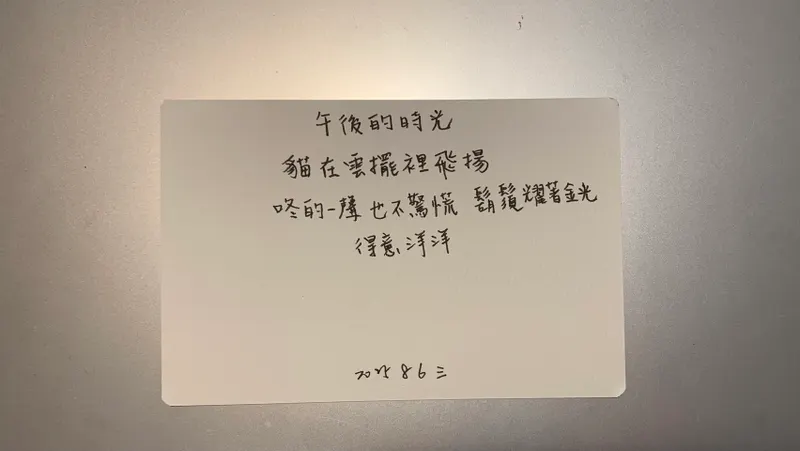 午後的時光
貓在雲擺裡飛揚
咚的一聲也不驚慌 鬍鬚耀著金光
得意洋洋
2025 8 6 三